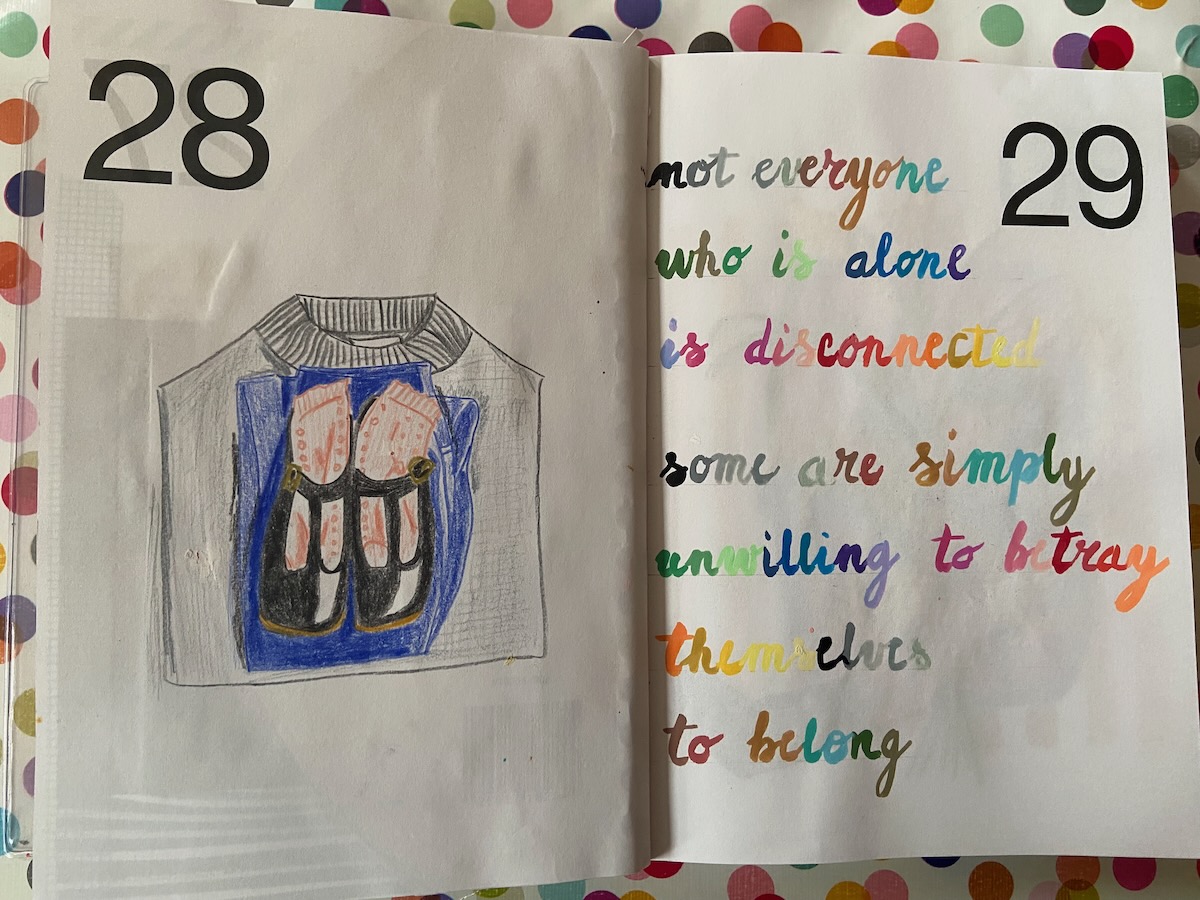 28
29
not everyone
who is alone
is disconnected
some are simply
unwilling to betray
themselves
to belong